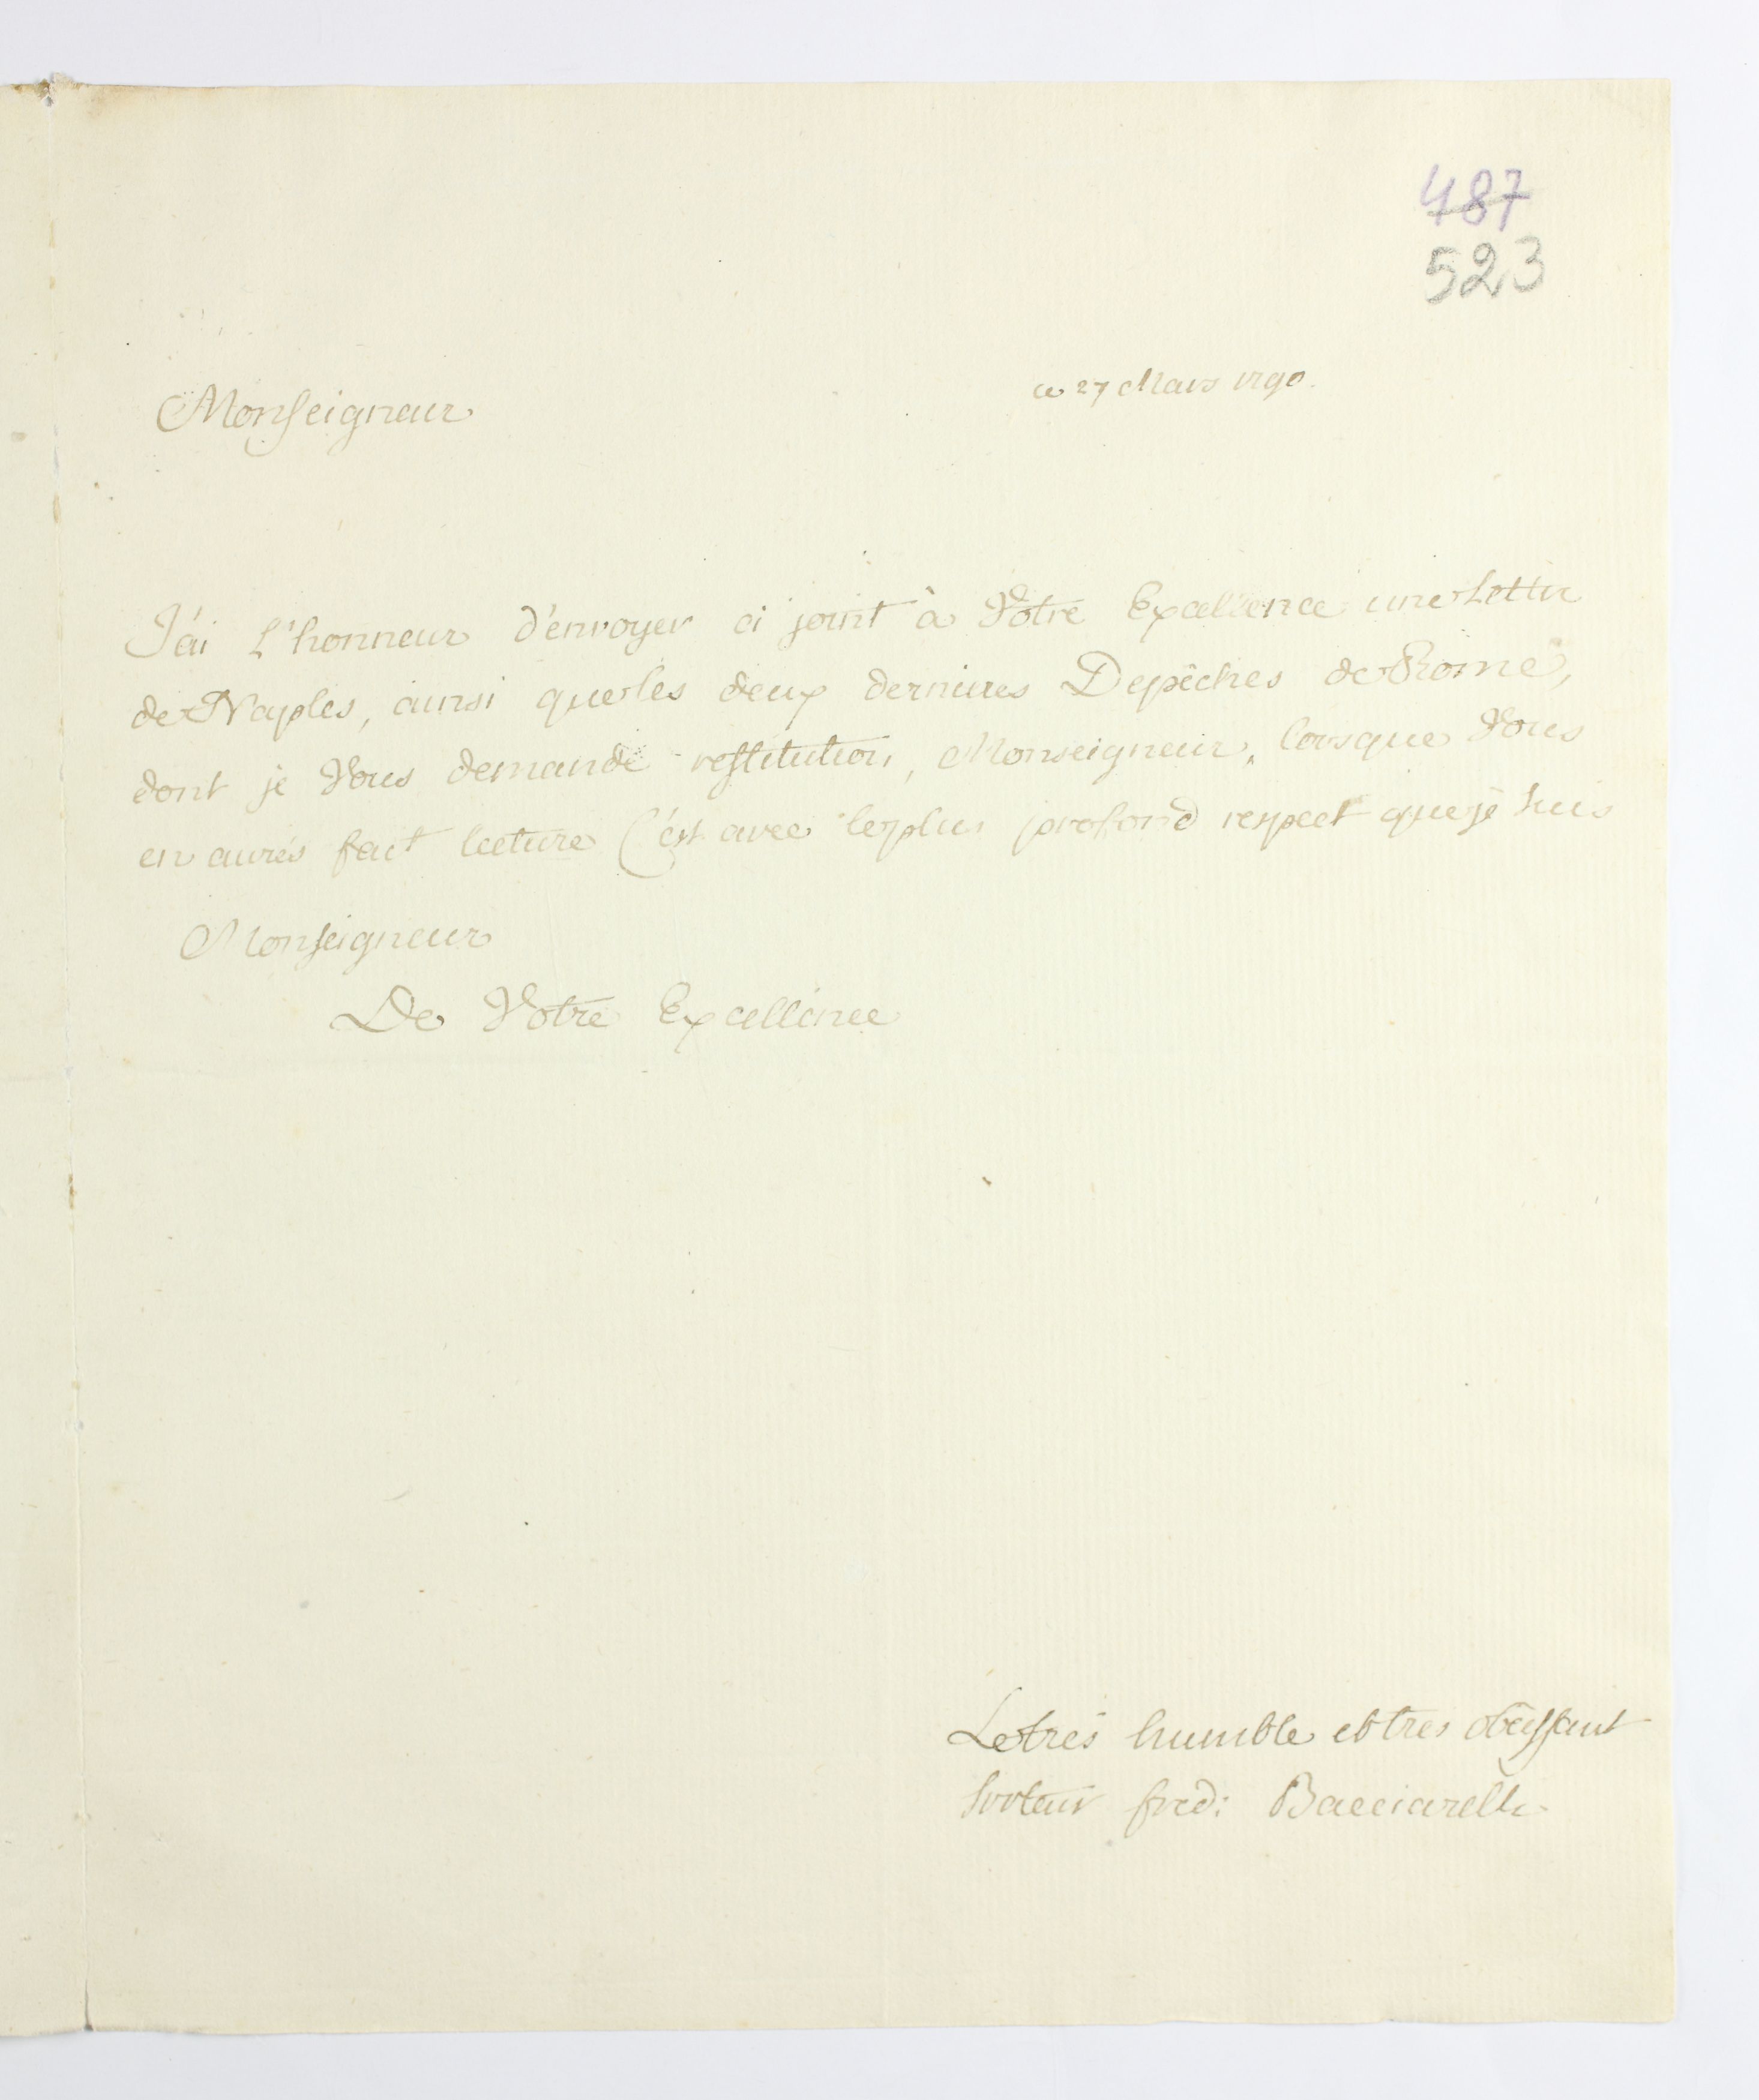 487
523
ce 27 Mars 1790.
Monseigneur
J'ai l'honneur d'envoyer ci joint à Votre Excellence une Lettre
de Naples, ainsi que les deux dernieres Depêches de Rome,
dont je Vous demande restitution, Monseigneur, lorsque Vous
en aurés fait lecture C'est avec le plus profond respect que je suis
Monseigneur
De Votre Excellence
Le trés humble et tres obéissant
Serviteur fred: Bacciarelli